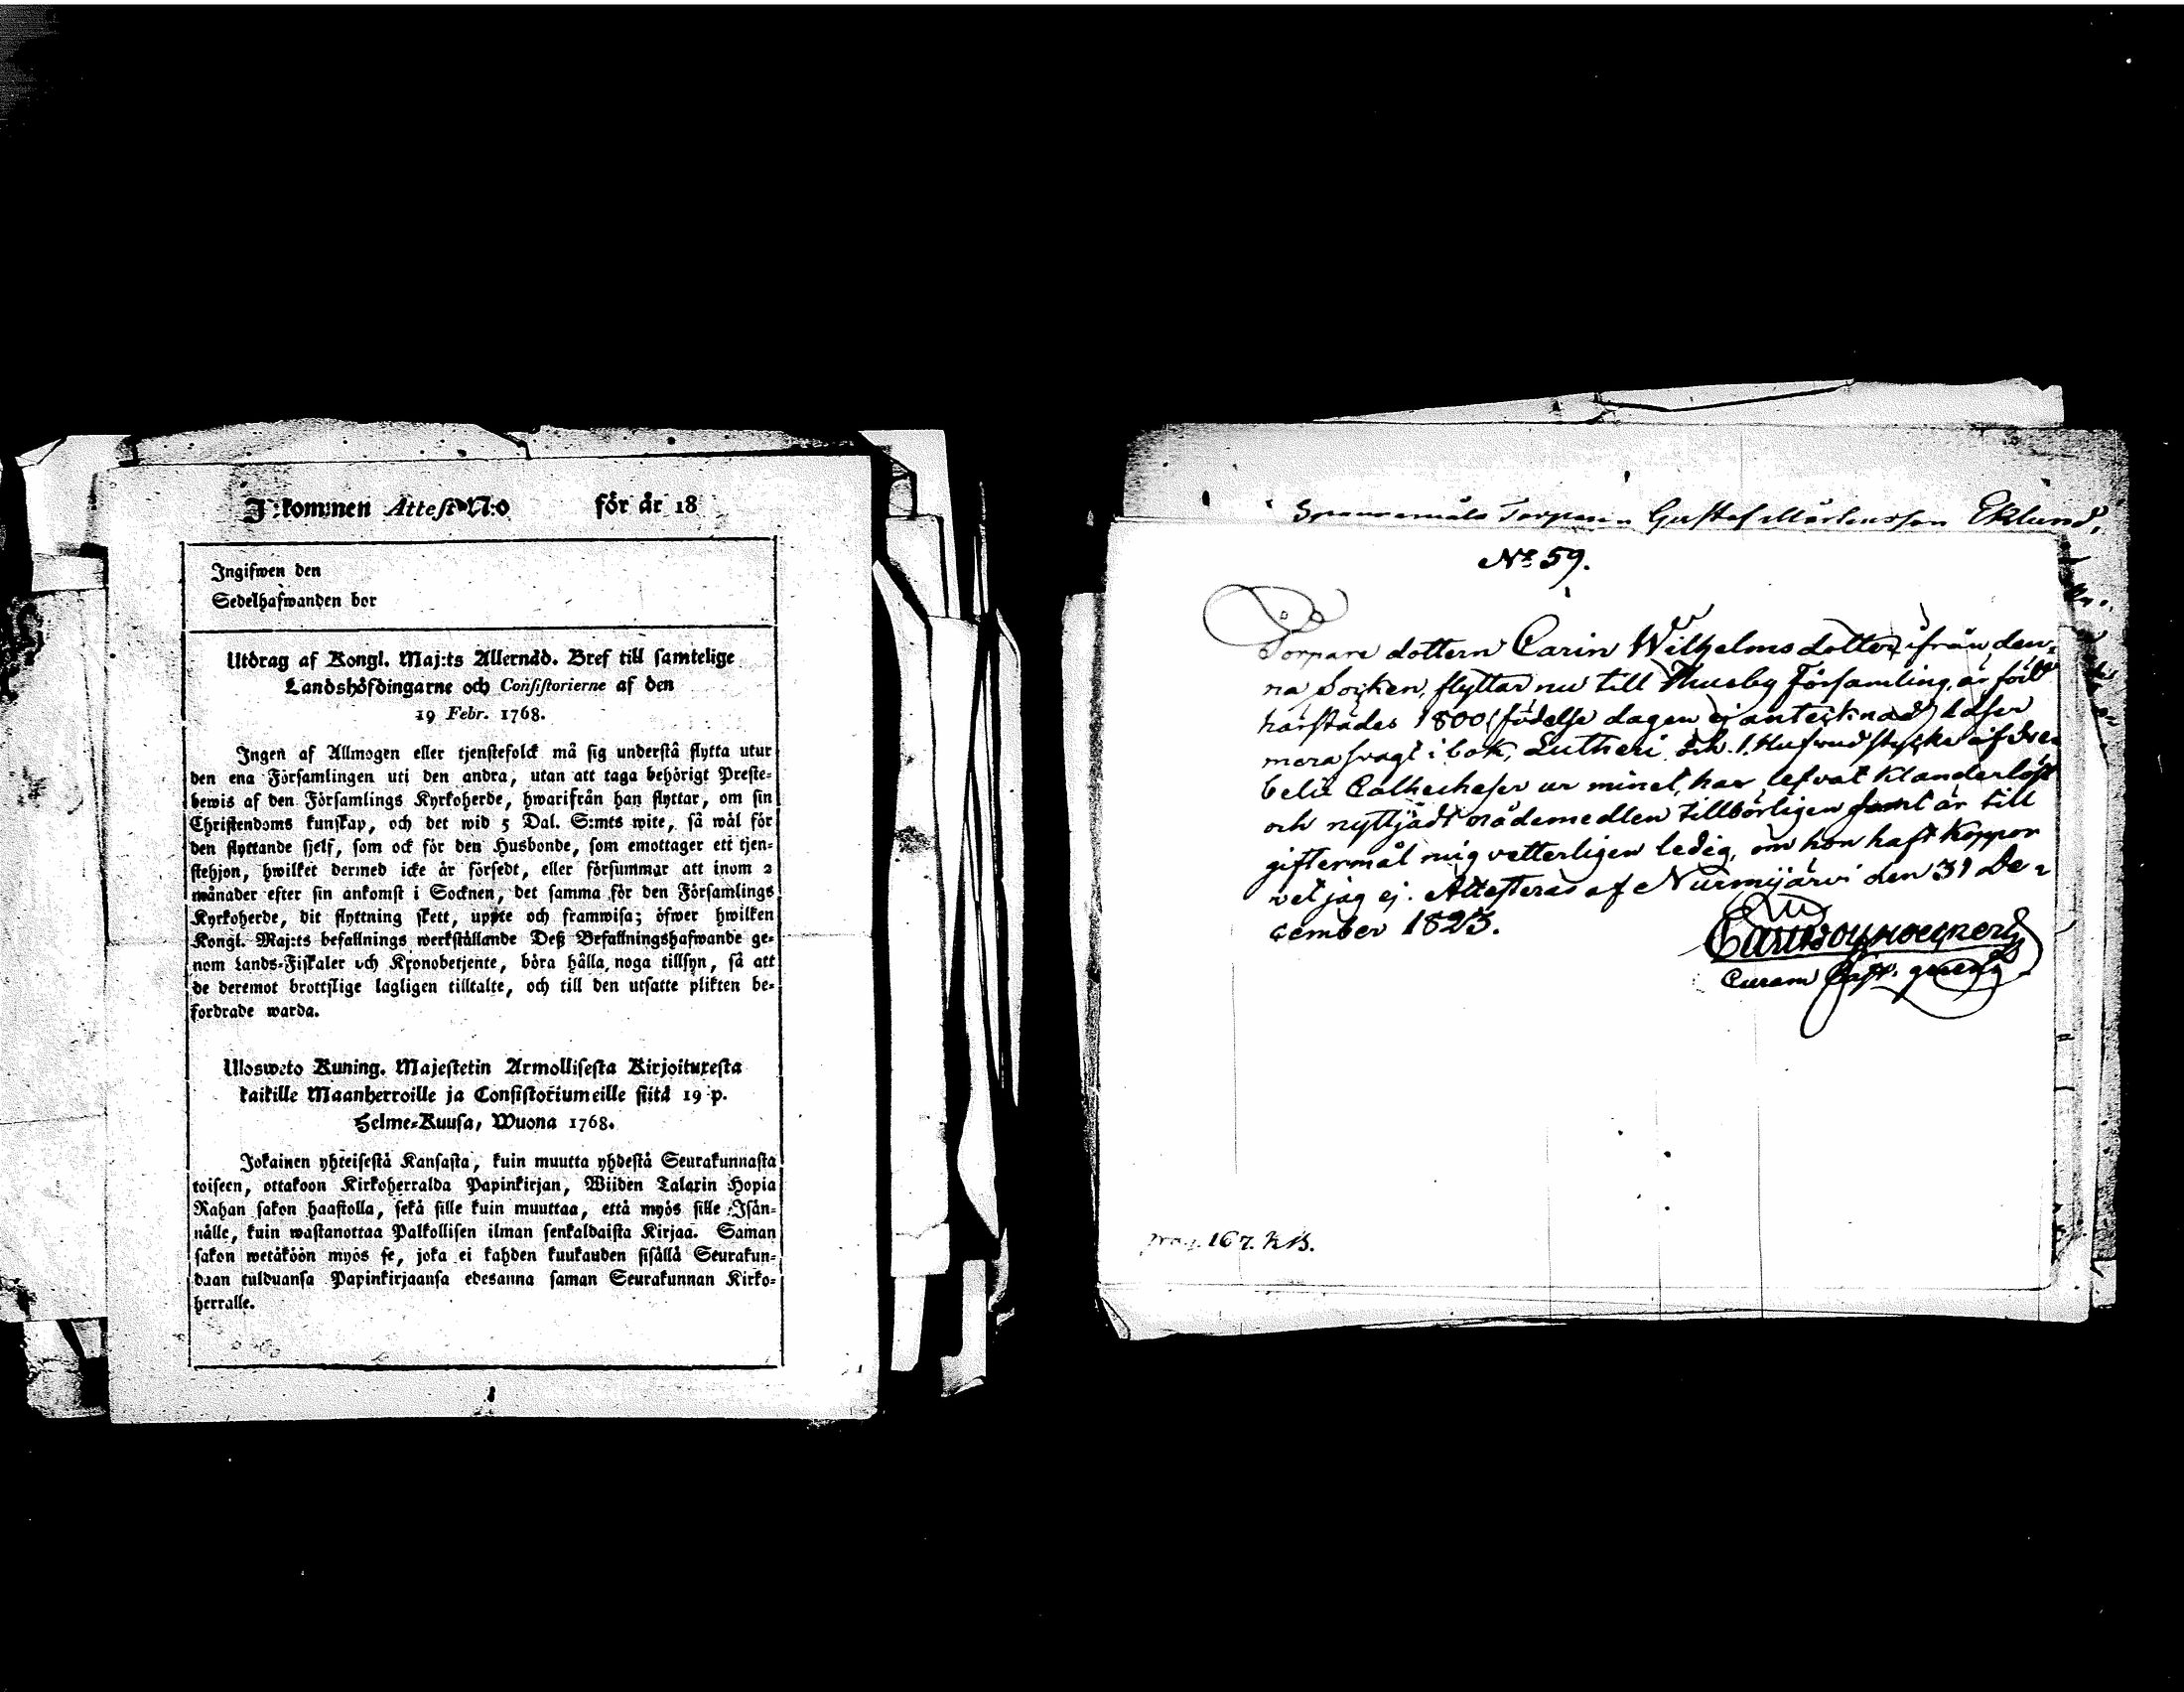 Inkommen Attest N:o för år 18
Ingifwen den
Sedelhafwanden bor
Utdrag af Kongl. Maj:ts Allernåd. Bref till samtelige
Landshöfdingarne och Consistorierne af den
19 Febr. 1768.
Ingen af Allmogen eller tjenstefolck må sig understå flytta utur
den ena Församlingen uti den andra, utan att taga behörigt Preste-
bewis af den Församlings Kyrkoherde, hwarifrån han flyttar, om sin
Christendoms kunskap, och det wid 5 Dal. S:mts wite, så wäl för
den flyttande sjelf, som ock för den Husbonde, som emottager ett tjen-
stehjon, hwilket dermed icke är försedt, eller försummar att inom 2
månader efter sin ankomst i Socknen, det samma för den Församlings
Kyrkoherde, dit flyttning skett, uppte och framwisa; öfwer hwilken
Kongl. Maj:ts befallnings werkställande Deß Befallningshafwande ge-
nom Lands-Fiskaler och Kronobetjente, böra hålla noga tillsyn, så att
de deremot brottslige lagligen tilltalte, och till den utsatte plikten be-
fordrade warda.
Ulosweto Kuning. Majestetin Armollisesta Kirjoituxesta
kaikille Maanherroille ja Consistoriumeille siitä 19 p.
Helme-Kuusa, Wuona 1768.
Jokainen yhteisestä Kansasta, kuin muutta yhdestä Seurakunnasta
toiseen, ottakoon Kirkoherralda Papinkirjan, Wiiden Talarin Hopia
Rahan sakon haastolla, sekä sille kuin muuttaa, että myös sille Isän-
nälle, kuin wastanottaa Palkollisen ilman senkaldaista Kirjaa. Saman
sakon wetäköön myös se, joka ei kahden kuukauden sisällä Seurakun-
daan tulduansa Papinkirjaansa edesanna saman Seurakunnan Kirko-
herralle.
Torparen Gustaf Mårtensson Eklund,
No 59.
Torpare dottern Carin Wilhelmsdotter ifrån den-
na Socken, flyttar nu till Thusby Församling, är född
härstädes 1800 (födelse dagen ej antecknad) läser
mera svagt i bok, Lutheri och 1. Hufvudstycke af Sve-
belii Catheches ur minet, har lefvat klanderlöst
och nyttjadt nådemedlen tillbörligen samt är till
giftermål mig vetterligen ledig, om hon haft koppor
vet jag ej. Attesteras af Nurmijärvi den 31 De-
cember 1823.
Curam Past. gerens
pag. 167. KB.